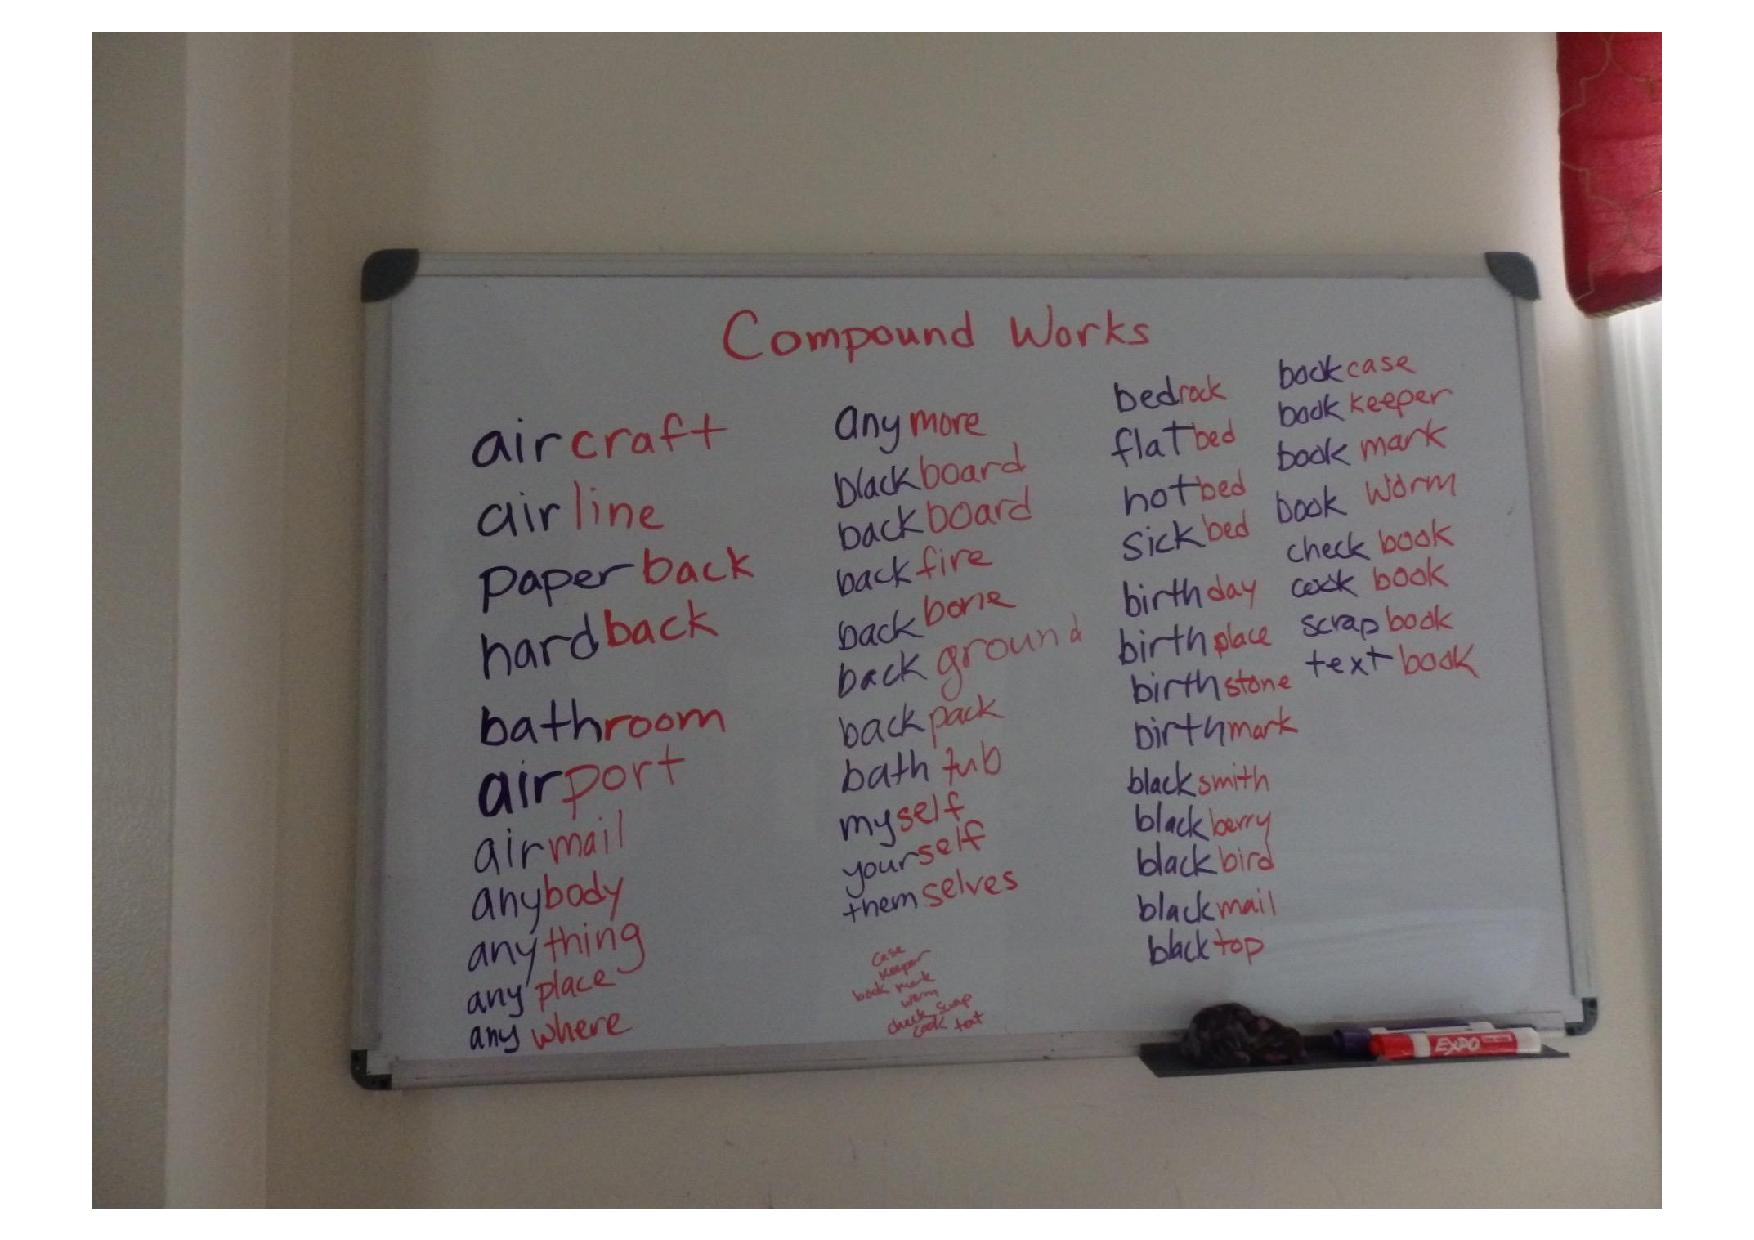 Compound Works
aircraft
airline
paperback
hardback
bathroom
airport
airmail
anybody
anything
any place
any where
any more
blackboard
backboard
back fire
back bone
back ground
back pack
bath tub
myself
yourself
themselves
case
keeper
book mark
worm
check scrap
cook text
bedrock
flatbed
hotbed
sickbed
birthday
birthplace
birthstone
birthmark
blacksmith
blackberry
blackbird
blackmail
blacktop
bookcase
book keeper
book mark
book worm
check book
cook book
scrapbook
textbook
EXPO